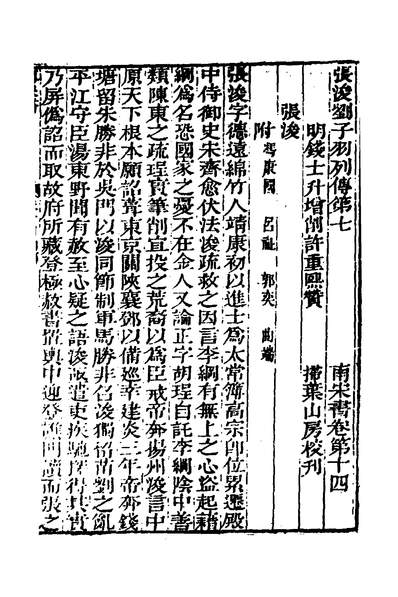 張浚劉子羽列傳第七 南宋書卷第十四
明錢士升增削許重熙贊 掃葉山房校刊
張浚
附 馮康國 呂祉 郭奕 曲端
張浚字德遠綿竹人靖康初以進士為太常簿高宗即位累遷殿
中侍御史宋齊愈伏法浚疏救之因言李綱有無上之心盜起藉
綱為名恐國家之憂不在金人又論正字胡珵自託李綱陰中善
類陳東之疏珵實筆削宜投之荒裔以為臣戒帝奔揚州浚言中
原天下根本願詔葺東京關陝襄鄧以備巡幸建炎三年帝奔錢
塘留朱勝非於吳門以浚同節制軍馬勝非召浚獨留苗劉之亂
平江守臣湯東野聞有赦至心疑之語浚浚遣吏疾馳探得其實
乃屏偽詔而取故府所藏登極赦書置輿中迎登譙門讀而張之